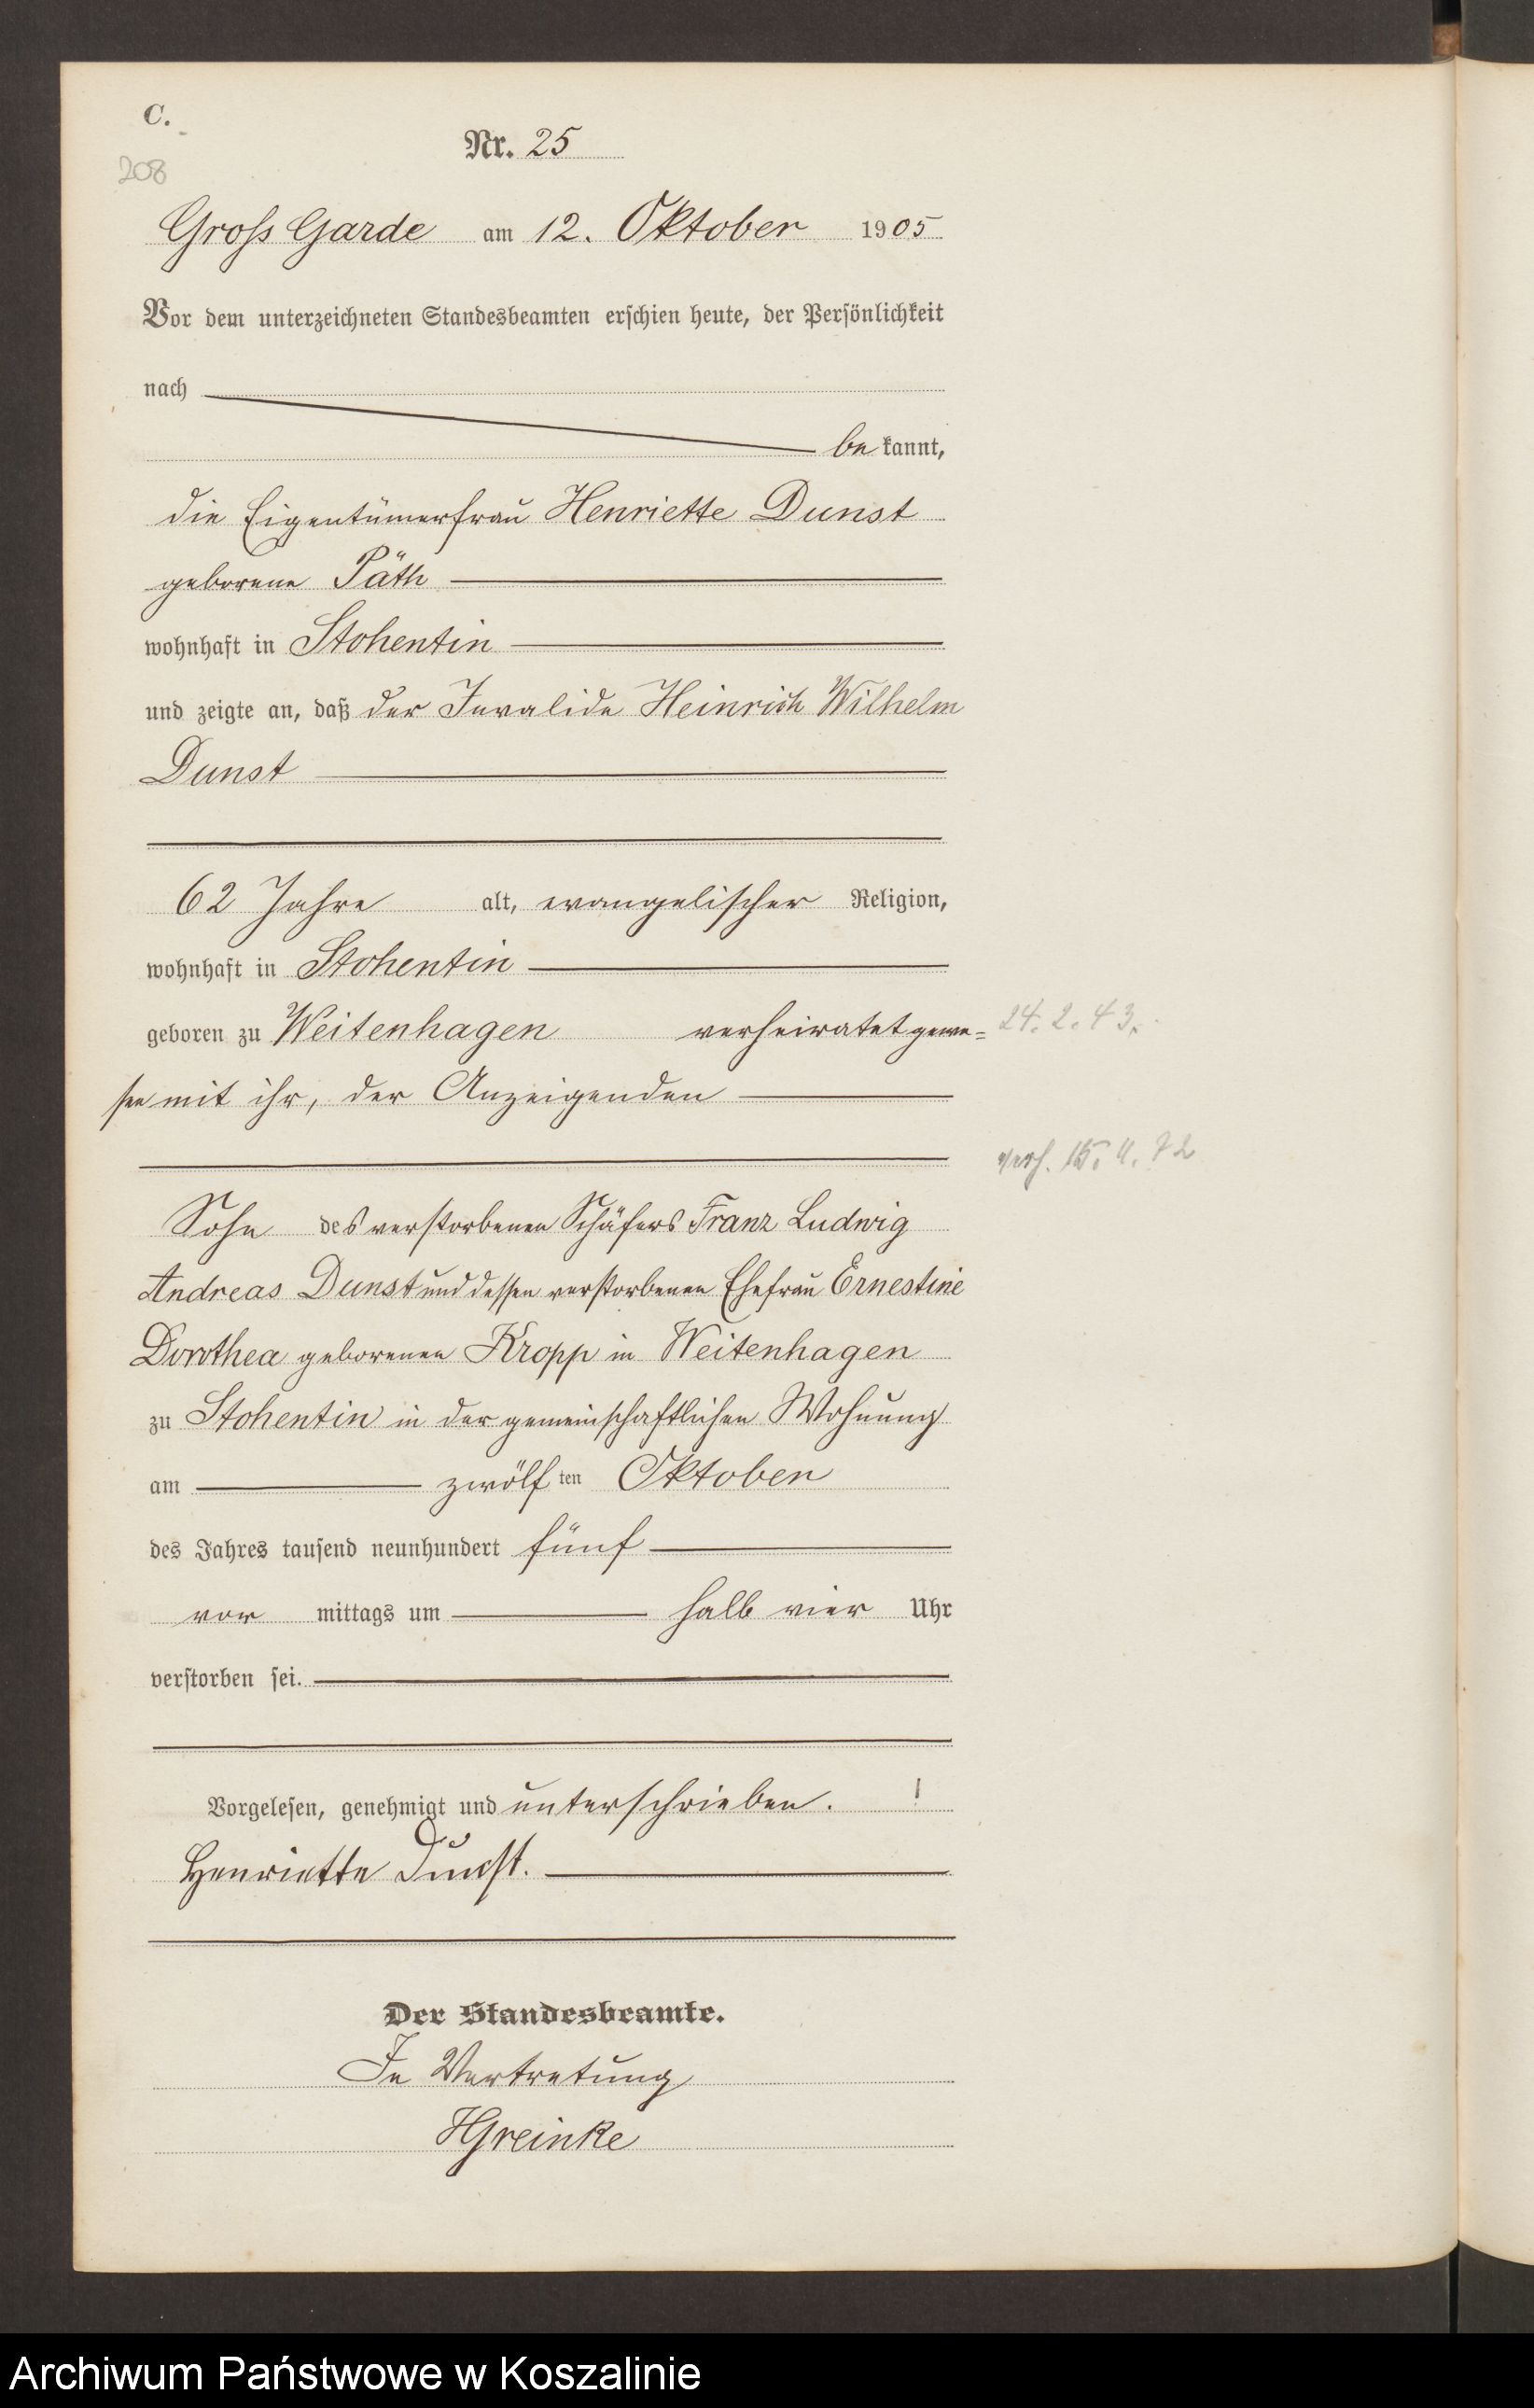 C.
208
Nr. 25
Gross Garde am 12. Oktober 1905
Vor dem unterzeichneten Standesbeamten erschien heute, der Persönlichkeit
nach
be kannt,
die Eigentümerfrau Henriette Dunst
geborene Päth
wohnhaft in Stohentin
und zeigte an, daß der Invalide Heinrich Wilhelm
Dunst
62 Jahre alt, evangelischer Religion,
wohnhaft in Stohentin
geboren zu Weitenhagen verheiratet gewe=
24. 2. 43.
sen mit ihr, der Anzeigenden
verh. 15. 11. 72
Sohn des verstorbenen Schäfers Franz Ludwig
Andreas Dunst und dessen verstorbenen Ehefrau Ernestine
Dorothea geborenen Kropp in Weitenhagen
zu Stohentin in der gemeinschaftlichen Wohnung
am zwölf ten Oktober
des Jahres tausend neunhundert fünf
vor mittags um halb vier Uhr
verstorben sei.
Vorgelesen, genehmigt und unterschrieben.
Henriette Dunst.
Der Standesbeamte.
In Vertretung
HGreinke
Archiwum Państwowe w Koszalinie